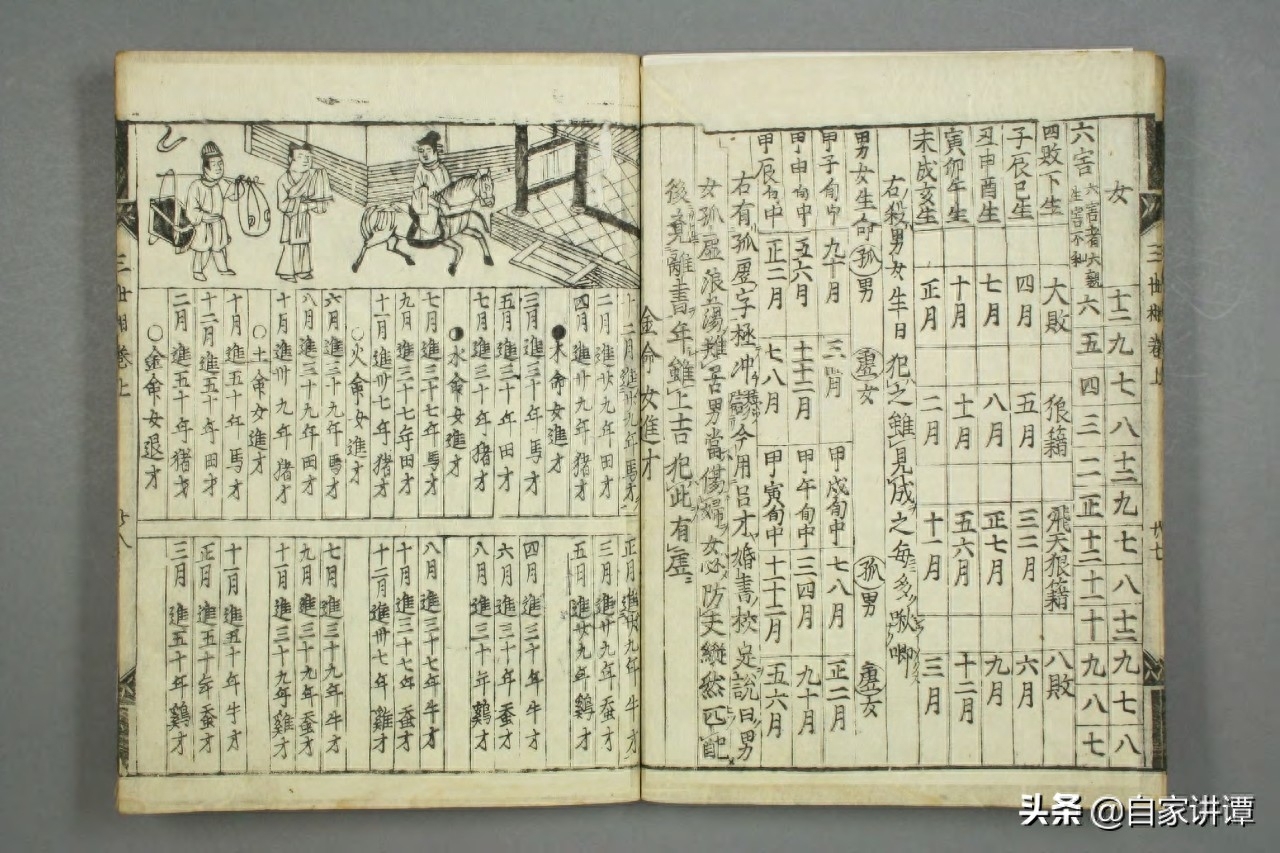 三世相卷上
女 十二 九 七 八 十二 九 七 八 十二 九 七 八
六害 六害者大親生害不和 六 五 四 三 二 正 十二 十一 十 九 八 七
四敗下生 大敗 狼籍 飛天狼籍 八敗
子辰巳生 四月 五月 三二月 六月
丑申酉生 七月 八月 正七月 九月
寅卯午生 十月 十一月 五六月 十二月
未戌亥生 正月 二月 十一月 三月
右殺男女生日犯之雖見成之每多啾唧
男女生命孤男 虛女 孤男 虛女
甲子旬中 九十月 三四月 甲戌旬中 七八月 正二月
甲申旬中 五六月 十一十二月 甲午旬中 三四月 九十月
甲辰旬中 正二月 七八月 甲寅旬中 十一十二月 五六月
右有孤虛字極冲 今用呂才婚書校定說曰男
女孤虛浪蕩難苦男當傷婦女必防夫縱然匹配
後竟離書年雖上吉犯此有虛
金命女進才
十二月進卅九年馬才
正月進卅九年牛才
二月進卅九年田才
三月進卅九年蚕才
四月進卅九年猪才
五月進卅九年鷄才
木命女進才
三月進三十年馬才
四月進三十年牛才
五月進三十年田才
六月進三十年蚕才
七月進三十年猪才
八月進三十年鷄才
水命女進才
七月進三十七年馬才
八月進三十七年牛才
九月進三十七年田才
十月進三十七年蚕才
十一月進卅七年猪才
十二月進卅七年雞才
火命女進才
六月進三十九年馬才
七月進三十九年牛才
八月進三十九年田才
九月進三十九年蚕才
十月進卅九年猪才
十一月進三十九年雞才
土命女進才
十月進五十年馬才
十一月進五十年牛才
十二月進五十年田才
正月進五十年蚕才
二月進五十年猪才
三月進五十年鷄才
金命女退才
三世相卷上
头条 @自家讲谭